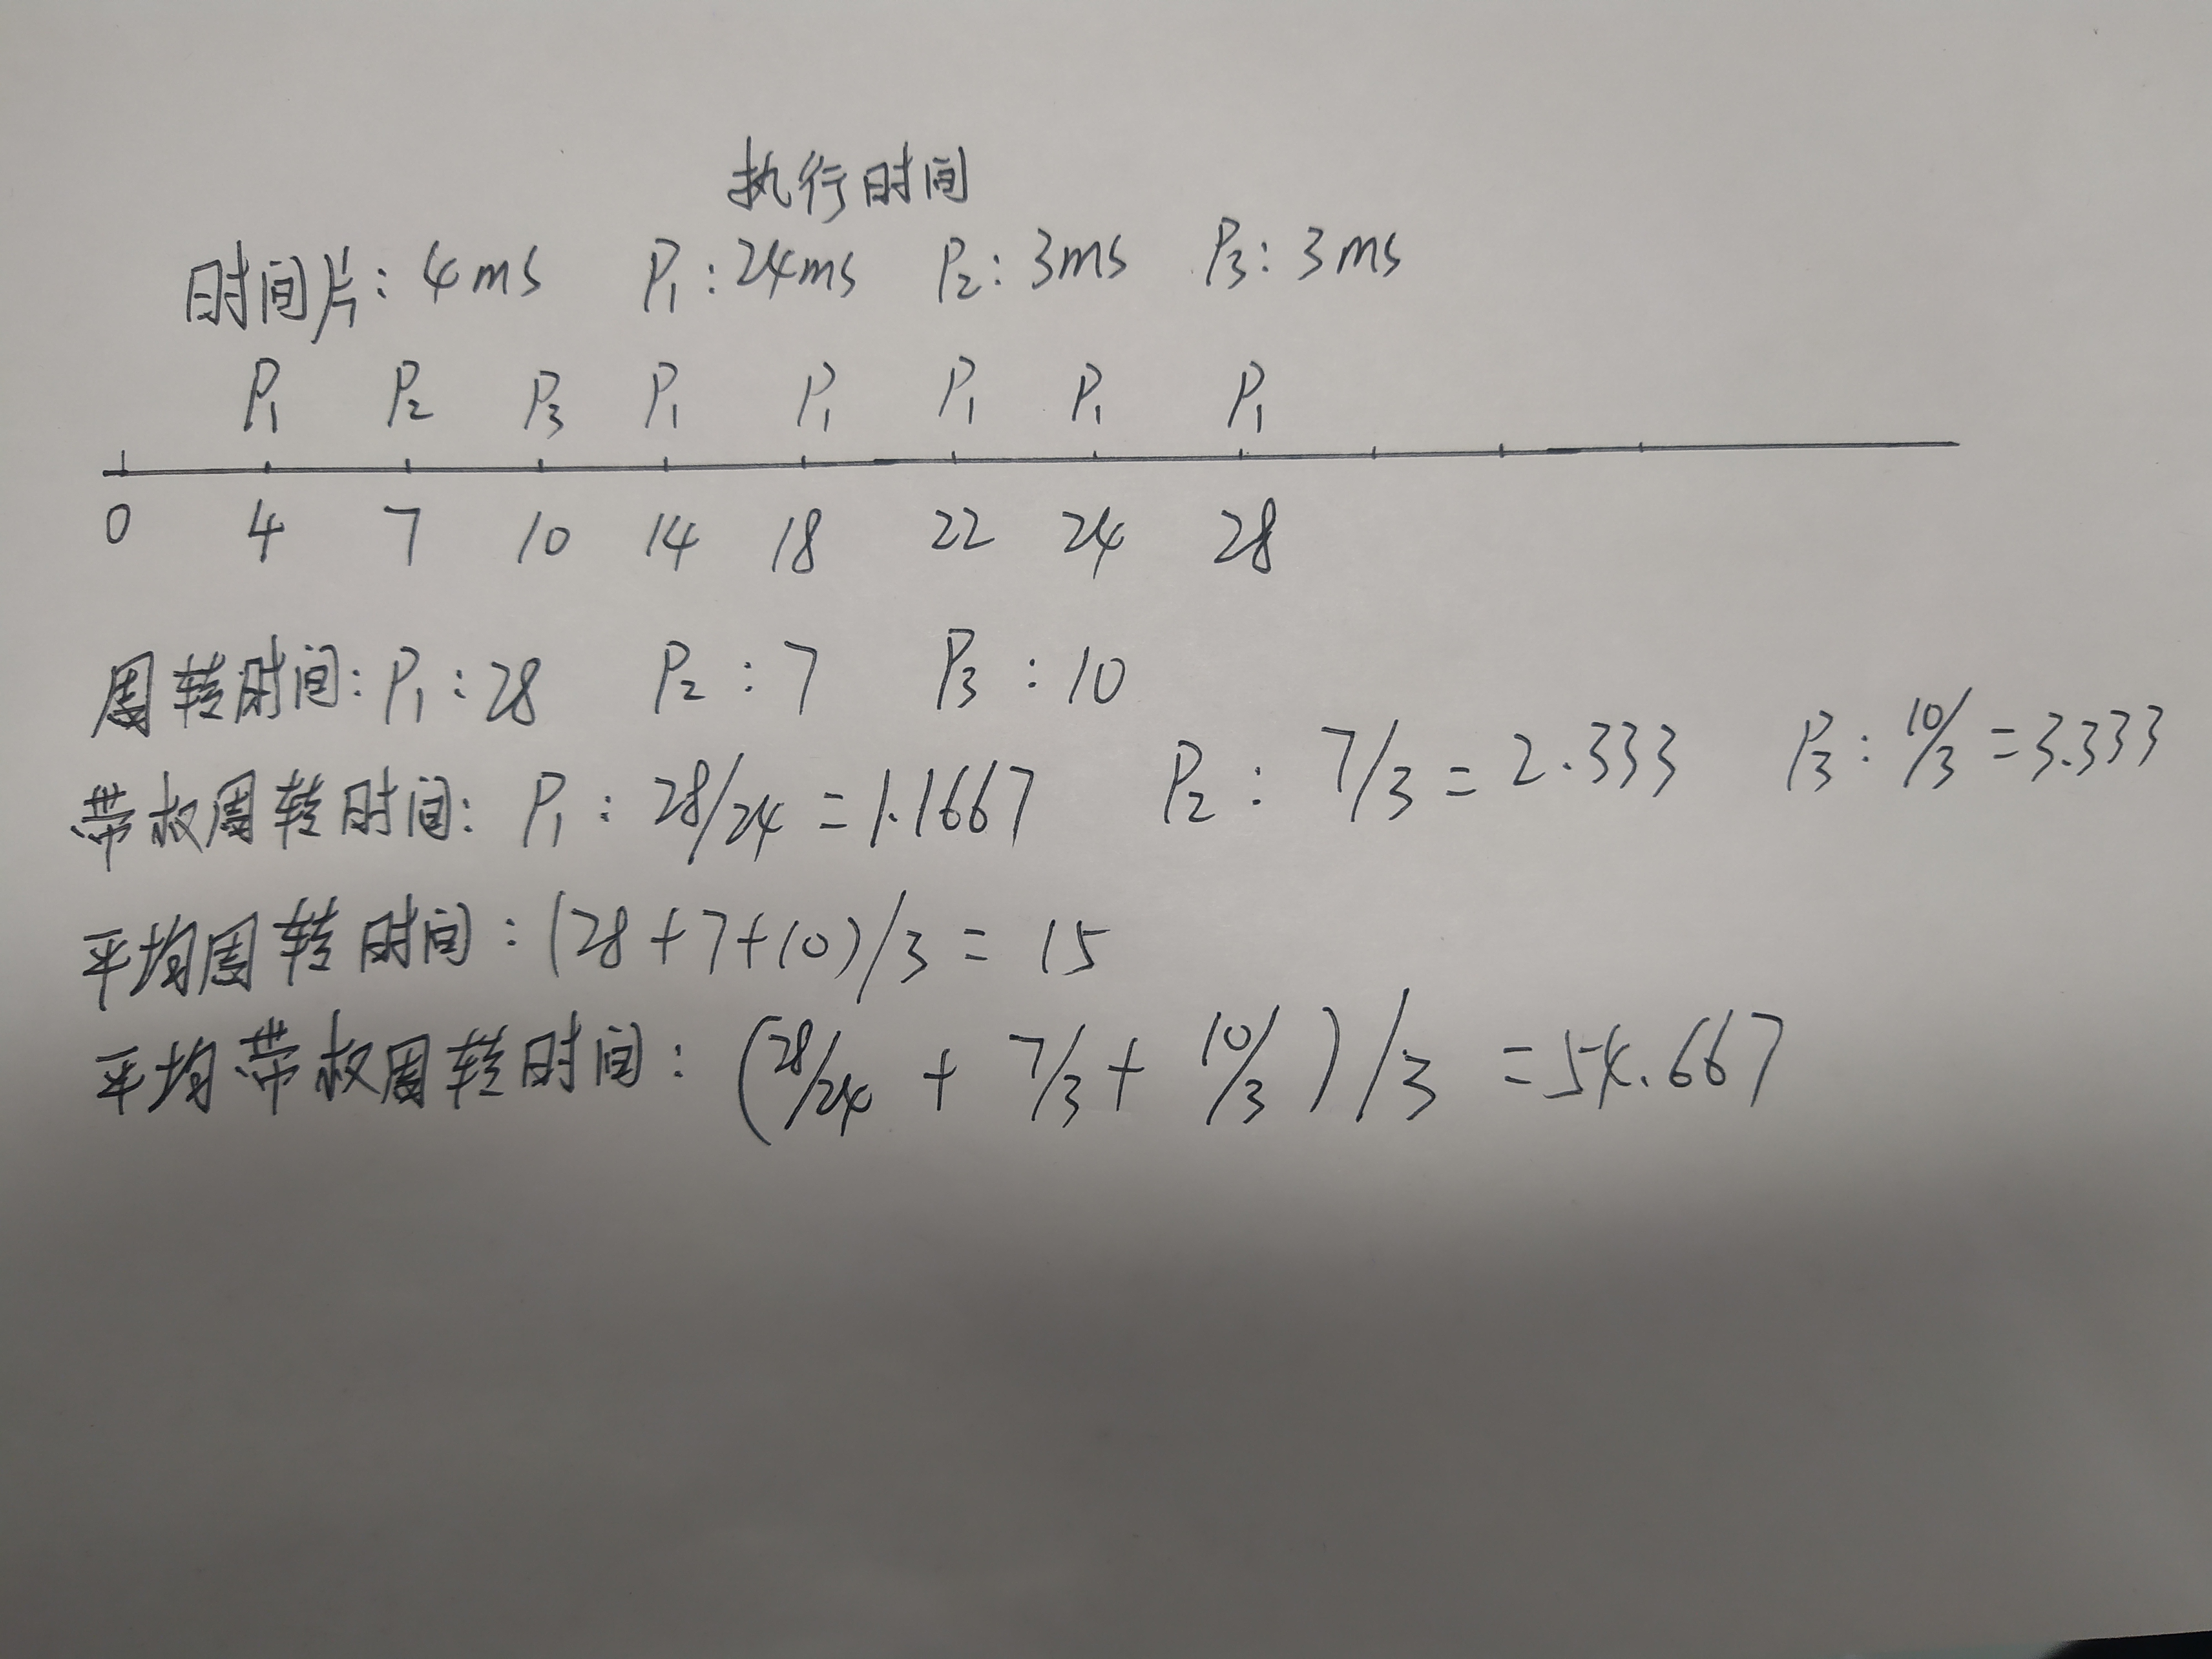 执行时间
时间片: 4ms P1: 24ms P2: 3ms P3: 3ms
P1 P2 P3 P1 P1 P1 P1 P1
0 4 7 10 14 18 22 24 28
周转时间: P1: 28 P2: 7 P3: 10
带权周转时间: P1: 28/24 = 1.1667 P2: 7/3 = 2.333 P3: 10/3 = 3.333
平均周转时间: (28+7+10)/3 = 15
平均带权周转时间: (28/24 + 7/3 + 10/3)/3 = 54.667